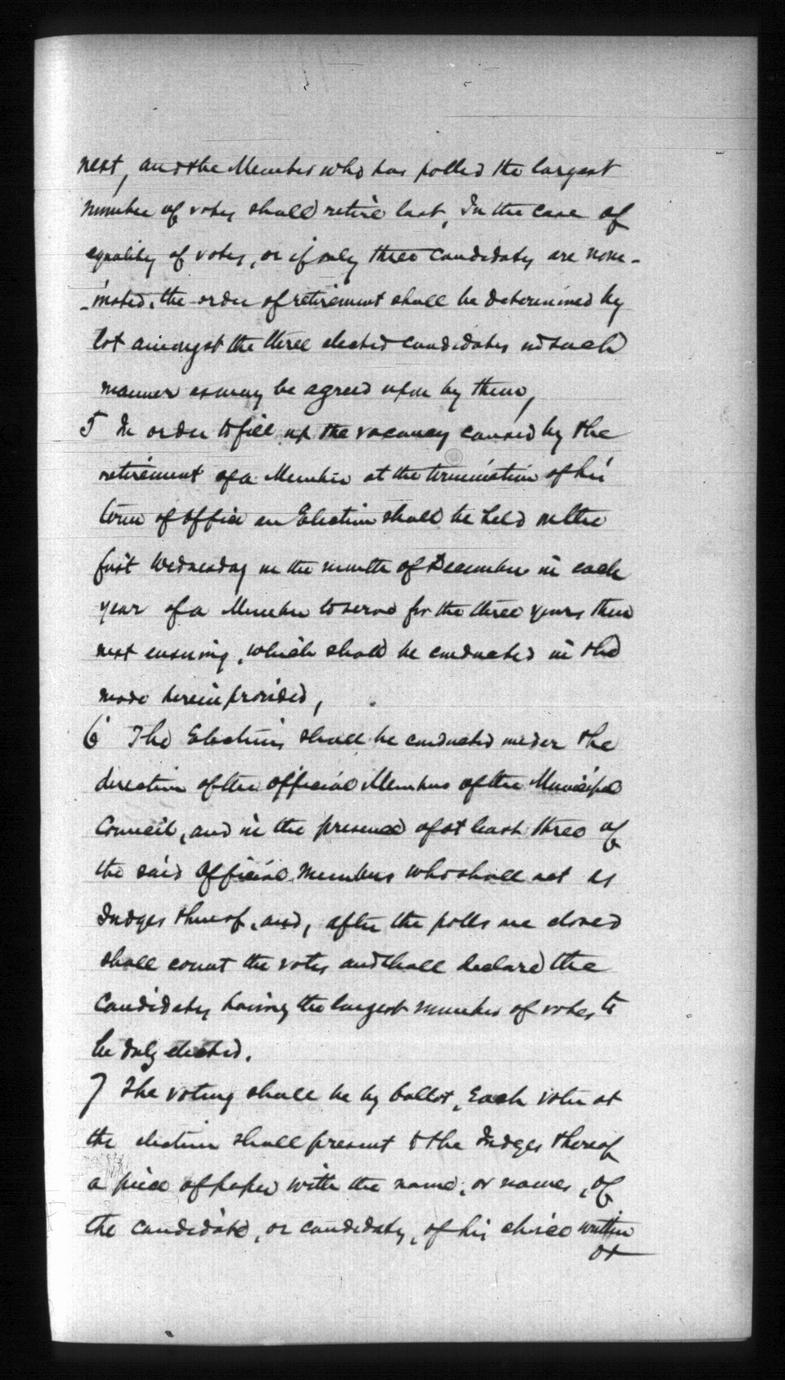 next, and the Member who has polled the largest
number of votes shall retire last. In the case of
equality of votes, or if only three candidates are nom-
-inated, the order of retirement shall be determined by
lot amongst the three elected candidates in such
manner as may be agreed upon by them,
5 In order to fill up the vacancy caused by the
retirement of a Member at the termination of his
term of office an Election shall be held on the
first Wednesday in the month of December in each
year of a Member to serve for the three years then
next ensuing, which shall be conducted in the
mode herein provided,
6 The Elections shall be conducted under the
direction of the official Members of the Municipal
Council, and in the presence of at least three of
the said Official Members who shall act as
Judges thereof, and, after the polls are closed
shall count the votes and shall declare the
Candidates having the largest number of votes to
be duly elected.
7 The voting shall be by ballot. Each voter at
the election shall present to the Judges thereof
a piece of paper with the name, or names, of
the candidate, or candidates, of his choice written
or